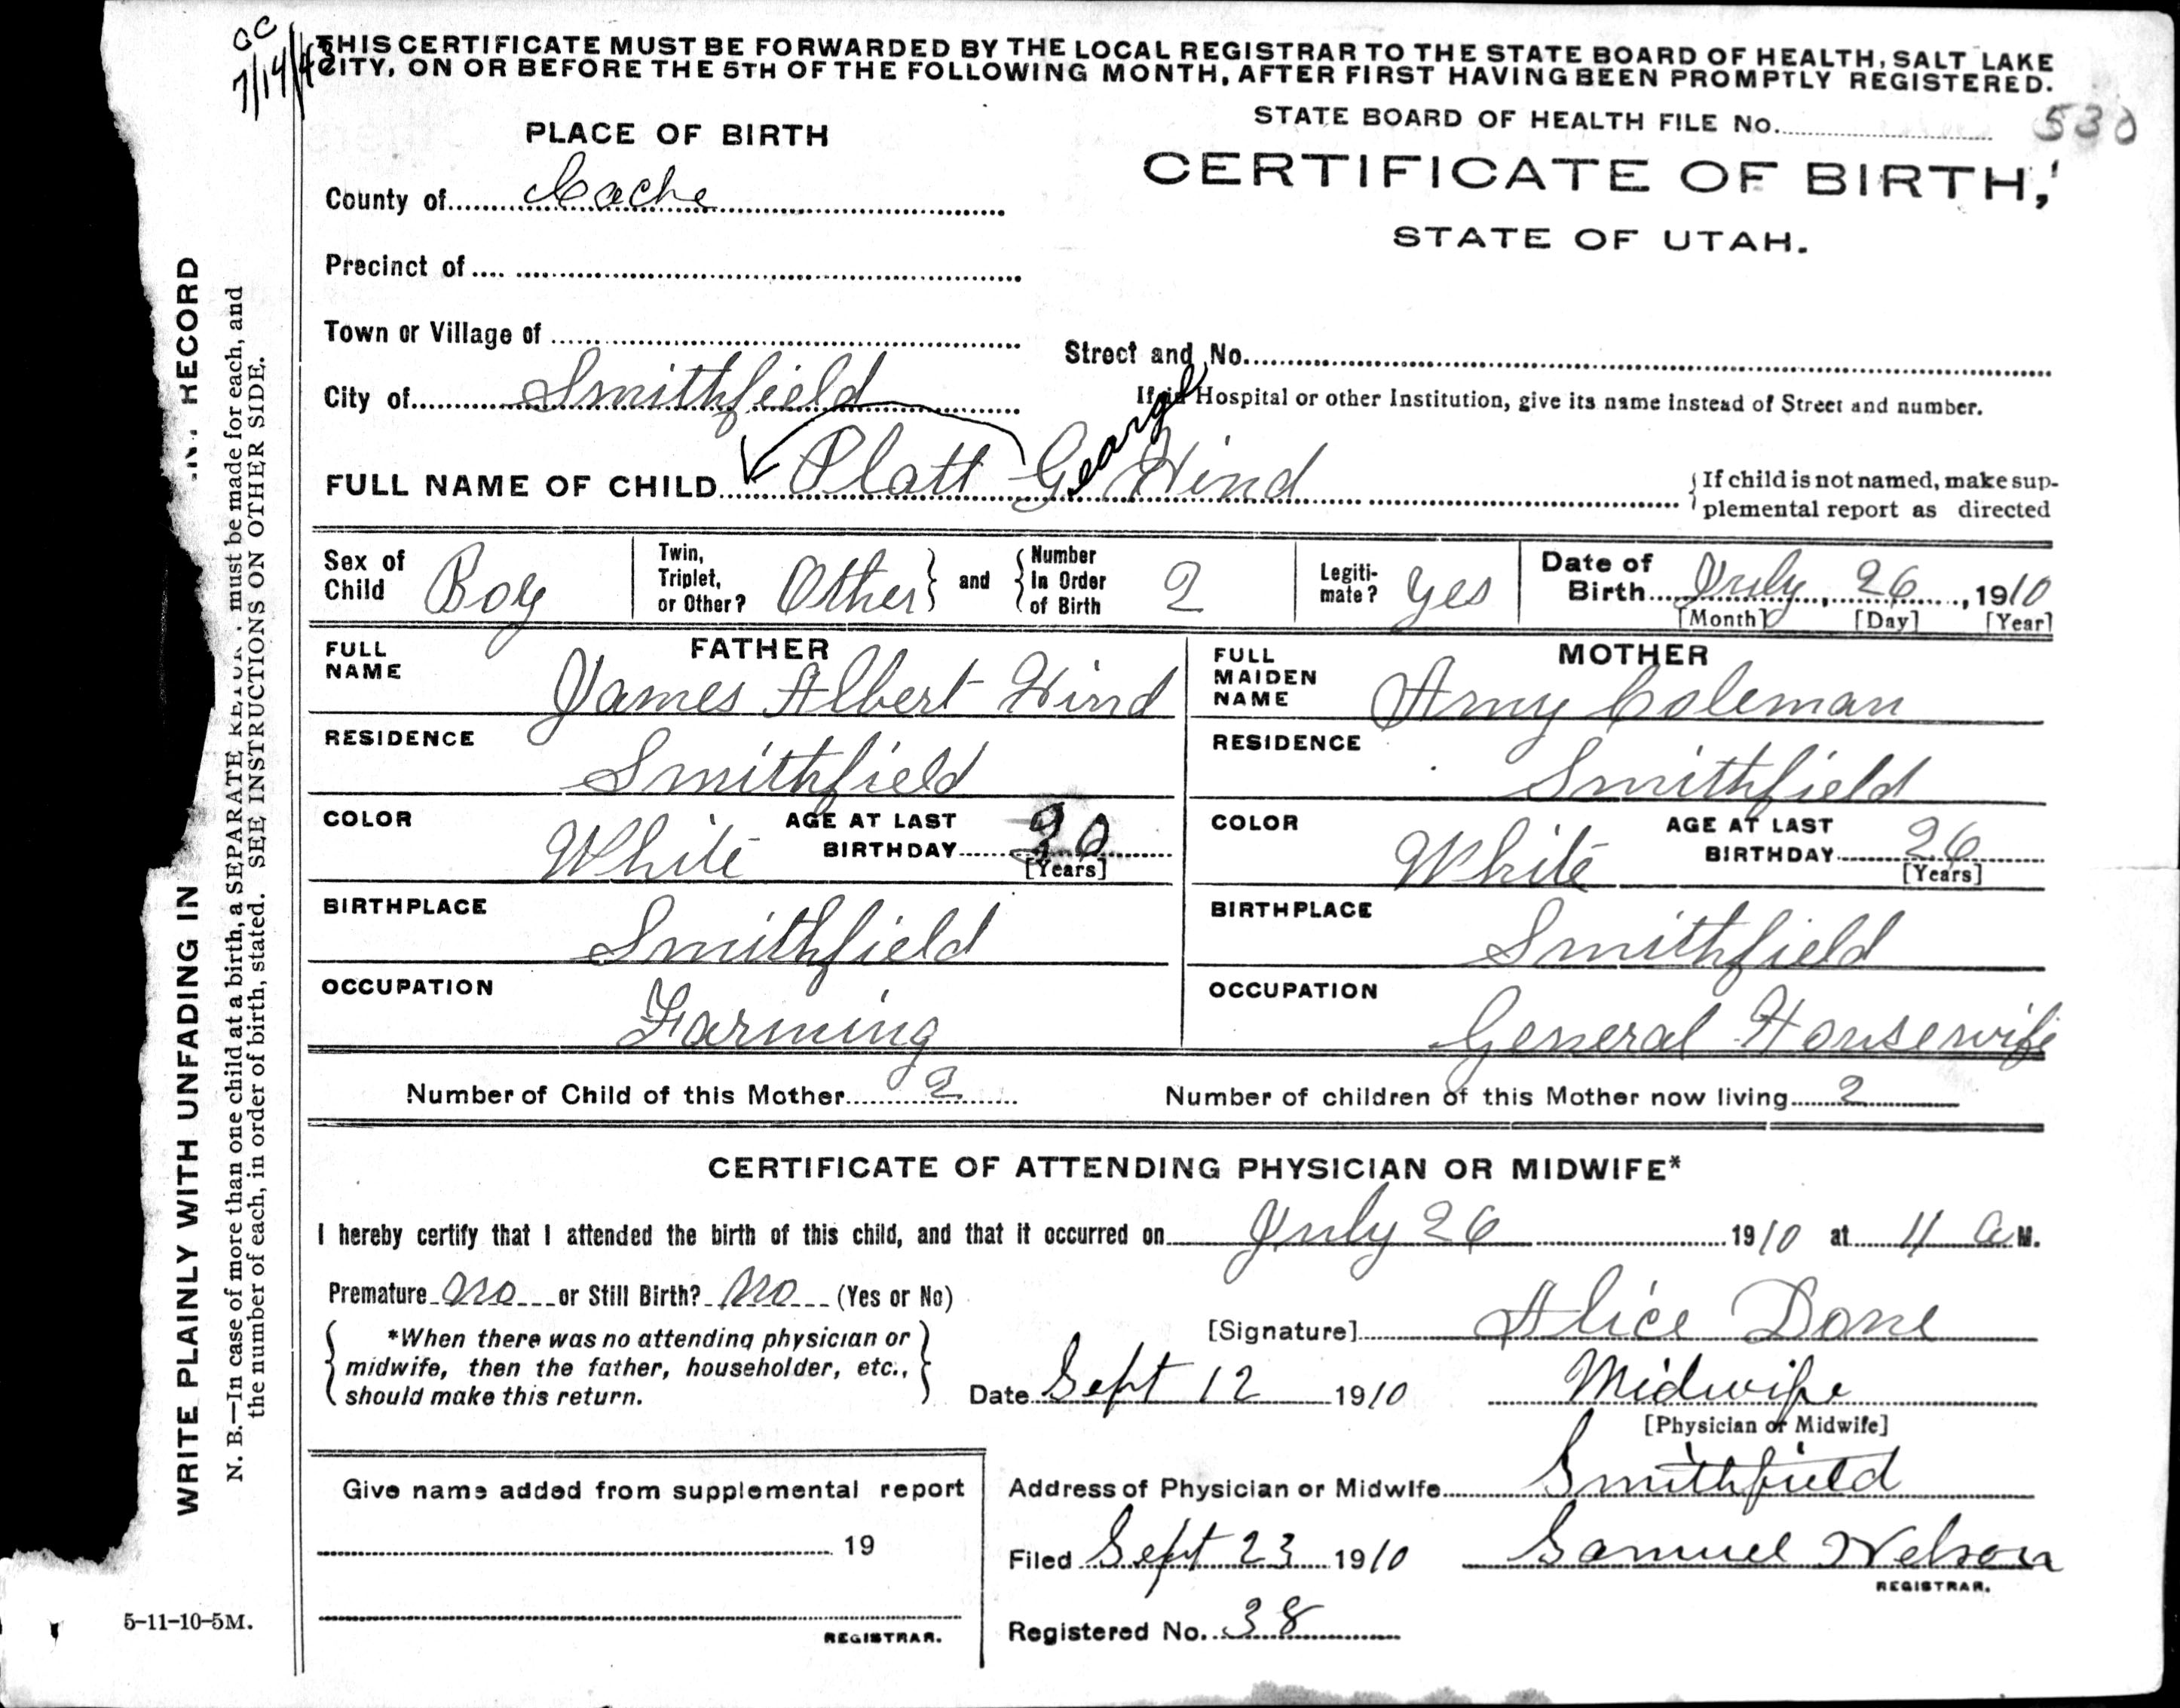 OC
7/14/4
THIS CERTIFICATE MUST BE FORWARDED BY THE LOCAL REGISTRAR TO THE STATE BOARD OF HEALTH, SALT LAKE
CITY, ON OR BEFORE THE 5TH OF THE FOLLOWING MONTH, AFTER FIRST HAVING BEEN PROMPTLY REGISTERED.
STATE BOARD OF HEALTH FILE No. 530
PLACE OF BIRTH
CERTIFICATE OF BIRTH,
STATE OF UTAH.
County of Cache
Precinct of
Town or Village of
Street and No.
City of Smithfield
If in Hospital or other Institution, give its name instead of Street and number.
FULL NAME OF CHILD Platt George Hind
If child is not named, make sup-
plemental report as directed
Sex of Child Boy
Twin, Triplet, or Other? Other and Number In Order of Birth 2
Legiti-mate? Yes
Date of Birth July, 26, 1910
[Month] [Day] [Year]
FATHER
FULL NAME James Albert Hind
RESIDENCE Smithfield
COLOR White AGE AT LAST BIRTHDAY
[Years]
BIRTHPLACE Smithfield
OCCUPATION Farming
MOTHER
FULL MAIDEN NAME Amy Coleman
RESIDENCE Smithfield
COLOR White AGE AT LAST BIRTHDAY 26
[Years]
BIRTHPLACE Smithfield
OCCUPATION General Housewife
Number of Child of this Mother 2 Number of children of this Mother now living 2
CERTIFICATE OF ATTENDING PHYSICIAN OR MIDWIFE*
I hereby certify that I attended the birth of this child, and that it occurred on July 26 1910 at 11 a M.
Premature no or Still Birth? no (Yes or No)
*When there was no attending physician or
midwife, then the father, householder, etc.,
should make this return.
[Signature] Alice Done
Date Sept 12 1910 Midwife
[Physician or Midwife]
Give name added from supplemental report
19
REGISTRAR.
Address of Physician or Midwife Smithfield
Filed Sept 23 1910 Samuel Nelson
REGISTRAR.
Registered No. 38
WRITE PLAINLY WITH UNFADING IN NT RECORD
N. B.—In case of more than one child at a birth, a SEPARATE RETUR must be made for each, and
the number of each, in order of birth, stated. SEE INSTRUCTIONS ON OTHER SIDE.
5-11-10-5M.